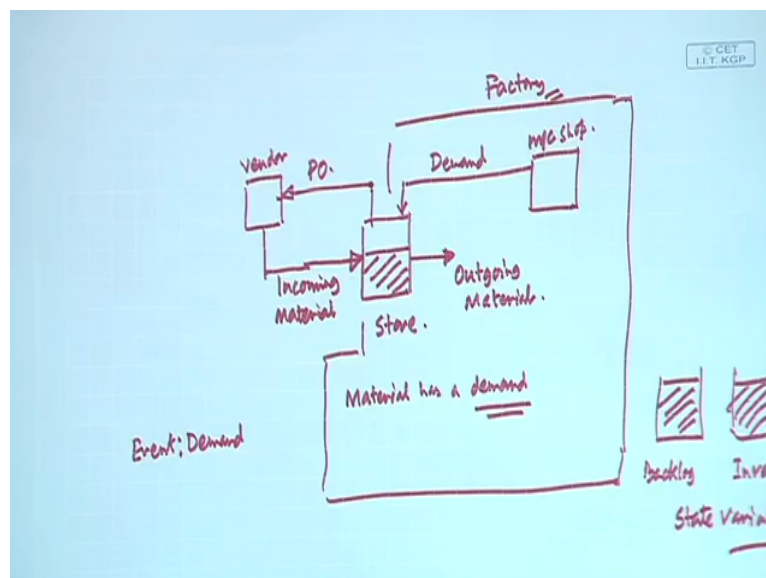 © CET
I.I.T. KGP
Factory
m/c shop.
Vendor
PO.
Demand
Incoming
Material
Outgoing
Material.
Store.
Material has a demand
Event: Demand
Backlog
Inve
State Varia